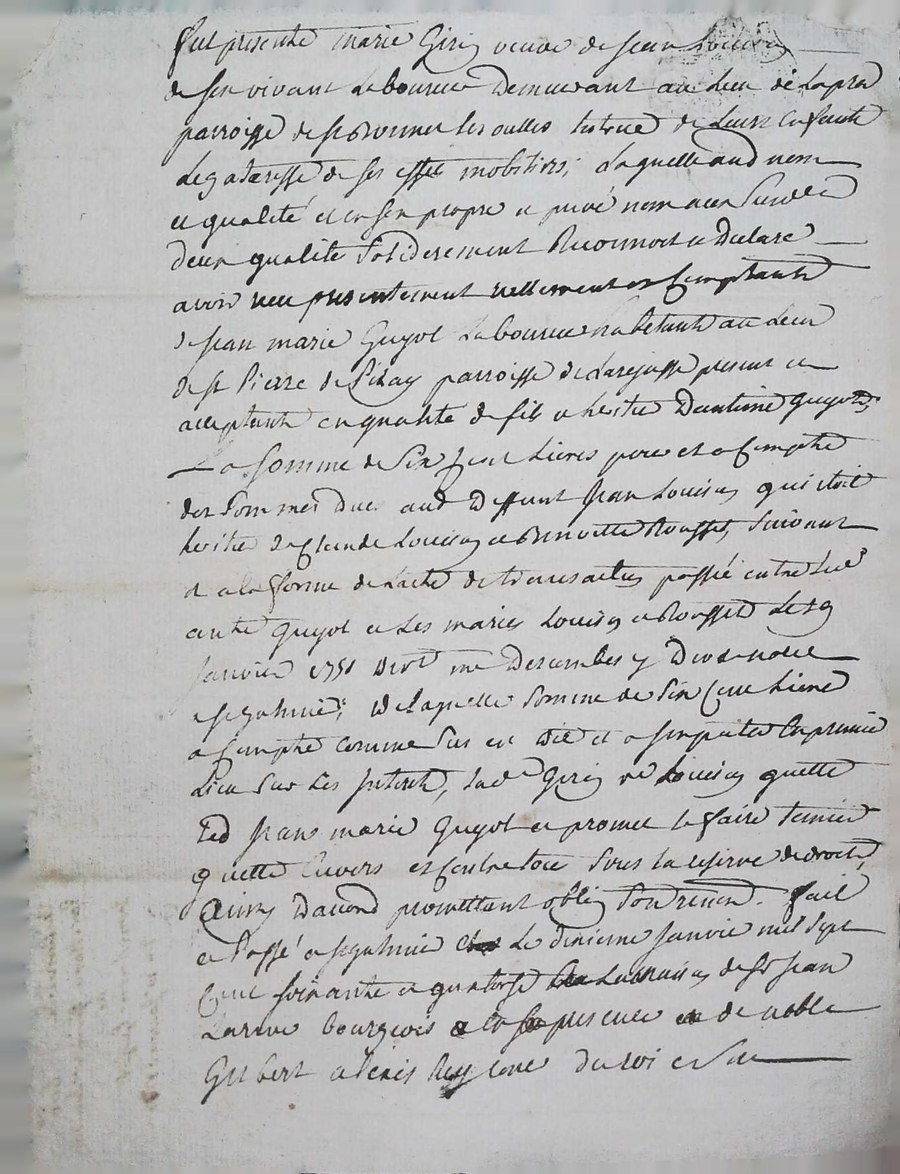 fut presente marie Girin veuve de jean Louison
de son vivant Laboureur Demeurant au Lieu de Lapra
parroisse de st Bonnet les oulles tutrice de Leurs Enfants
Legataresse de ses effets mobiliers; Laquelle aud nom
et qualité et en son propre et privé nom
deux qualité soliderement Reconnoit et Declare
avoir reçu presentement réellement et Comptant
de jean marie Guyot Laboureur habitant au Lieu
de st Pierre de parroisse de Larajasse present et
acceptant en qualité de fils et heritier D'antoine guyot,
La somme de six Cent Livres pour et a Compte
des sommes Dues aud Deffunt Jean Louison qui etoit
heritier de Claude Louison et Benoitte Rousset, suivant
et a la forme de L'acte de transaction passée entre Led
ante guyot et Les mariés Louison et Rousset Le 29
janvier 1751 Devt me Descombes y De notre
a st galmier; De Laquelle somme de six Cent Livres
a Compte comme sus est Dit et a imputer En premier
Lieu sur Les Interets, Lade Girin ve Louison quitte
Led Jean marie Guyot et promet le faire tenir
quitte Envers et Contre tous sous la reserve de droit,
Ainsy D'accord promettant oblig soum renon. fait
et Passé a st galmier Le dixieme janvier mil sept
Cent soixante et quatorse de Sr Jean
Larive bourgeois en presence de noble
Gilbert alexis du roi et Sr